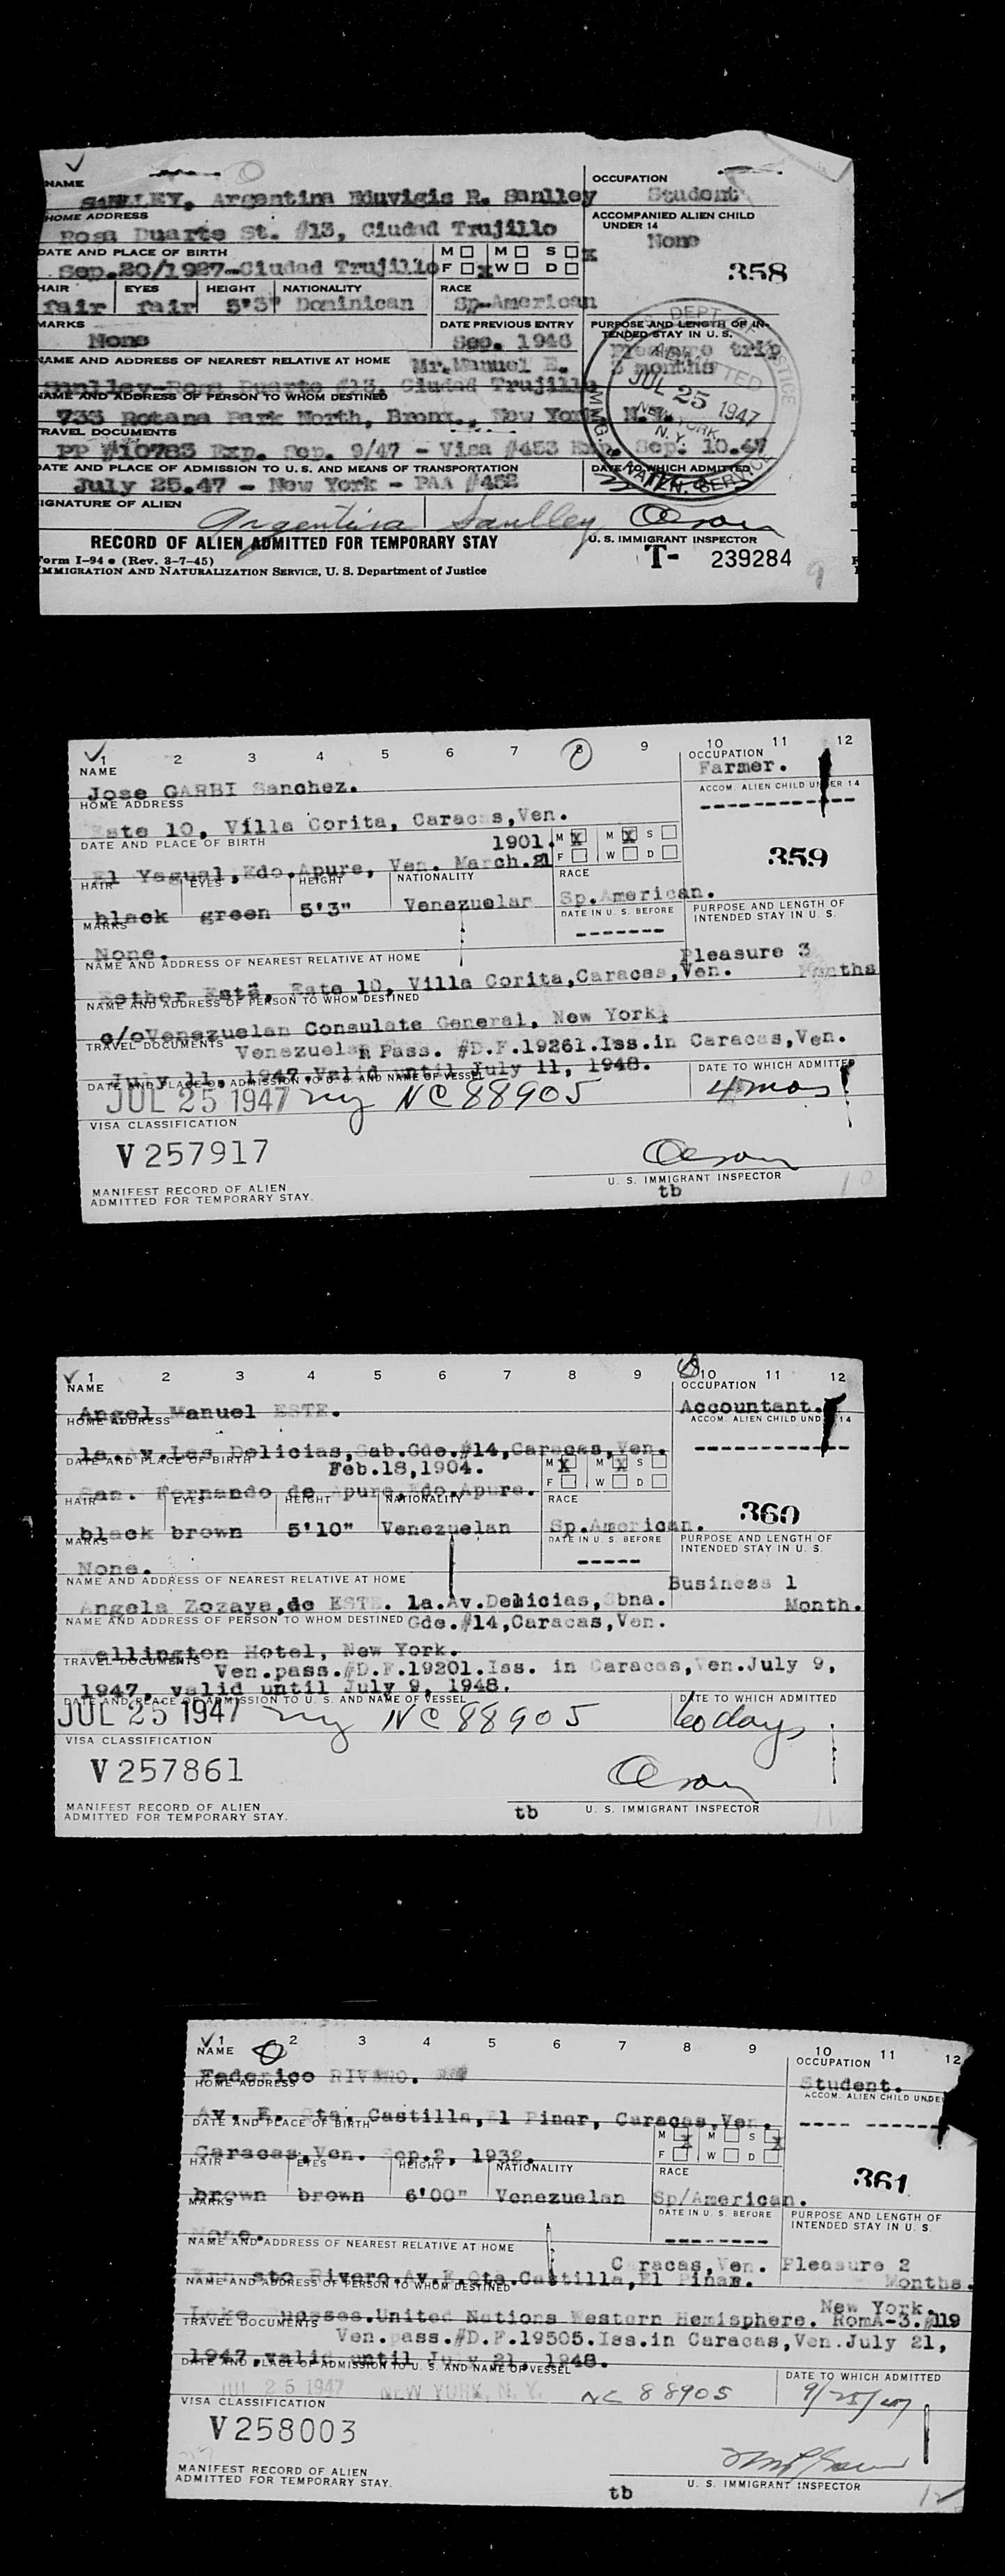 NAME
SANLLEY, Argentina Eduvigis R. Sanlley
OCCUPATION
Student
HOME ADDRESS
Rosa Duarte St. #13, Ciudad Trujillo
ACCOMPANIED ALIEN CHILD UNDER 14
None
DATE AND PLACE OF BIRTH
Sep.20/1927-Ciudad Trujillo
M M S x
F x W D
358
HAIR EYES HEIGHT NATIONALITY RACE
fair fair 5'3" Dominican Sp-American
MARKS
None
DATE PREVIOUS ENTRY
Sep. 1946
PURPOSE AND LENGTH OF IN-
TENDED STAY IN U. S.
Pleasure trip
3 months
NAME AND ADDRESS OF NEAREST RELATIVE AT HOME
Mr. Manuel E.
Sanlley-Rosa Duarte #13, Ciudad Trujillo
NAME AND ADDRESS OF PERSON TO WHOM DESTINED
733 Botana Park North, Bronx., New York N.Y.
TRAVEL DOCUMENTS
PP #10783 Exp. Sep. 9/47 - Visa #453 Exp. Sep. 10.47
DATE AND PLACE OF ADMISSION TO U. S. AND MEANS OF TRANSPORTATION
July 25.47 - New York - PAA #452
DATE TO WHICH ADMITTED
DEPT. OF JUSTICE
ADMITTED
JUL 25 1947
NEW YORK
N. Y.
IMMIG. NATZN. SERVICE
SIGNATURE OF ALIEN
Argentina Sanlley
Olson
RECORD OF ALIEN ADMITTED FOR TEMPORARY STAY
U. S. IMMIGRANT INSPECTOR
Form I-94 e (Rev. 3-7-45)
IMMIGRATION AND NATURALIZATION SERVICE, U. S. Department of Justice
T- 239284
9
1 2 3 4 5 6 7 8 9 10 11 12
NAME
Jose GARBI Sanchez.
OCCUPATION
Farmer.
HOME ADDRESS
Este 10, Villa Corita, Caracas,Ven.
ACCOM. ALIEN CHILD UNDER 14
DATE AND PLACE OF BIRTH
1901.
El Yagual,Edo.Apure, Ven. March.21
M X M X S
F W D
359
HAIR EYES HEIGHT NATIONALITY RACE
black green 5'3" Venezuelan Sp.American.
MARKS
None.
DATE IN U. S. BEFORE
PURPOSE AND LENGTH OF
INTENDED STAY IN U. S.
Pleasure 3
Months
NAME AND ADDRESS OF NEAREST RELATIVE AT HOME
Esther Este, Este 10, Villa Corita,Caracas,Ven.
NAME AND ADDRESS OF PERSON TO WHOM DESTINED
c/oVenezuelan Consulate General, New York.
TRAVEL DOCUMENTS
Venezuelan Pass. #D.F.19261.Iss.in Caracas,Ven.
July 11, 1947 Valid until July 11, 1948.
DATE AND PLACE OF ADMISSION TO U. S. AND NAME OF VESSEL
DATE TO WHICH ADMITTED
JUL 25 1947 ny NC 88905
4 mos
VISA CLASSIFICATION
V 257917
Olson
U. S. IMMIGRANT INSPECTOR
MANIFEST RECORD OF ALIEN
ADMITTED FOR TEMPORARY STAY.
tb
10
1 2 3 4 5 6 7 8 9 10 11 12
NAME
Angel Manuel ESTE.
OCCUPATION
Accountant.
HOME ADDRESS
1a.Av.Las Delicias,Sab.Gde.#14,Caracas,Ven.
ACCOM. ALIEN CHILD UND 14
DATE AND PLACE OF BIRTH
Feb.18,1904.
San. Fernando de Apure,Edo.Apure.
M X M X S
F W D
360
HAIR EYES HEIGHT NATIONALITY RACE
black brown 5'10" Venezuelan Sp.American.
MARKS
None.
DATE IN U. S. BEFORE
PURPOSE AND LENGTH OF
INTENDED STAY IN U. S.
Business 1
Month.
NAME AND ADDRESS OF NEAREST RELATIVE AT HOME
Angela Zozaya,de ESTE. 1a.Av.Delicias, Sbna.
NAME AND ADDRESS OF PERSON TO WHOM DESTINED
Gde.#14,Caracas,Ven.
Wellington Hotel, New York.
TRAVEL DOCUMENTS
Ven.pass.#D.F.19201.Iss. in Caracas,Ven.July 9,
1947, valid until July 9, 1948.
DATE AND PLACE OF ADMISSION TO U. S. AND NAME OF VESSEL
DATE TO WHICH ADMITTED
JUL 25 1947 ny NC 88905
60 days
VISA CLASSIFICATION
V 257861
Olson
MANIFEST RECORD OF ALIEN
ADMITTED FOR TEMPORARY STAY.
tb
U. S. IMMIGRANT INSPECTOR
11
1 2 3 4 5 6 7 8 9 10 11 12
NAME
Federico RIVERO.
OCCUPATION
Student.
HOME ADDRESS
Av. E. Qta. Castilla,El Pinar, Caracas,Ven.
ACCOM. ALIEN CHILD UNDE
DATE AND PLACE OF BIRTH
Caracas,Ven. Sep.2, 1932.
M X M S X
F W D
361
HAIR EYES HEIGHT NATIONALITY RACE
brown brown 6'00" Venezuelan Sp/American.
MARKS
None.
DATE IN U. S. BEFORE
PURPOSE AND LENGTH OF
INTENDED STAY IN U. S.
NAME AND ADDRESS OF NEAREST RELATIVE AT HOME
Caracas,Ven. Pleasure 2
Ernesto Rivero.Av.E.Qta.Castilla,El Pinar.
Months.
NAME AND ADDRESS OF PERSON TO WHOM DESTINED
New York.
Lake United Nations Western Hemisphere. RomA-3.#119
TRAVEL DOCUMENTS
Ven.pass.#D.F.19505.Iss.in Caracas,Ven.July 21,
1947,valid until July 21, 1948.
DATE AND PLACE OF ADMISSION TO U. S. AND NAME OF VESSEL
DATE TO WHICH ADMITTED
JUL 25 1947 NEW YORK, N. Y. NC 88905
9/25/47
VISA CLASSIFICATION
V 258003
MANIFEST RECORD OF ALIEN
ADMITTED FOR TEMPORARY STAY.
tb
U. S. IMMIGRANT INSPECTOR
12